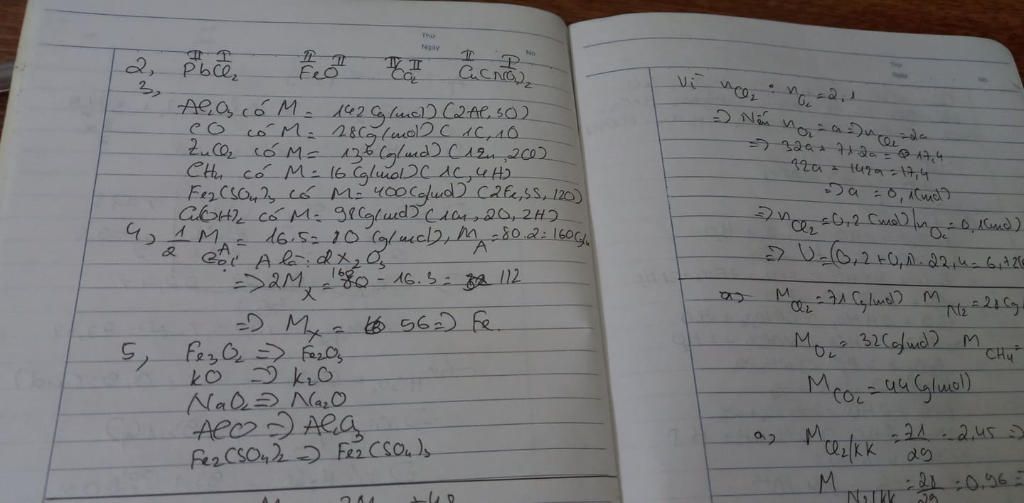 Thứ
Ngày
No
2, PbCl2 FeO CO2 Ca(NO3)2
II I II II IV II II I
3,
Al2O3 có M = 142(g/mol) (2Al, 3O)
CO có M = 28(g/mol) ( 1C, 1O
ZnCl2 có M = 136(g/mol) (1Zn, 2Cl)
CH4 có M = 16(g/mol) ( 1C, 4H)
Fe2(SO4)3 có M = 400(g/mol) (2Fe, 3S, 12O)
Cu(OH)2 có M = 98(g/mol) (1Cu, 2O, 2H)
4, 1/2 MA = 16.5 = 80 (g/mol), MA = 80.2 = 160(g/
Gọi A là: X2O3
=> 2MX = 160 - 16.3 = 112
=> MX = 56 => Fe.
5, Fe3O2 => Fe2O3
KO => K2O
NaO2 => Na2O
AlO => Al2O3
Fe2(SO4)2 => Fe2(SO4)3
Vì nCl2 : nO2 = 2,1
=> Nên nO2 = a => nCl2 = 2a
=> 32a + 71.2a = 17,4
32a + 142a = 17,4
=> a = 0,1(mol)
=> nCl2 = 0,2(mol) nO2 = 0,1(mol)
=> V = (0,2 + 0,1). 22,4 = 6,72(
a> MCl2 = 71(g/mol) MN2 = 28(g/
MO2 = 32(g/mol) MCH4 =
MCO2 = 44(g/mol)
a, MCl2/KK = 71/29 = 2,45 =>
MN2/KK = 28/29 = 0,96 =